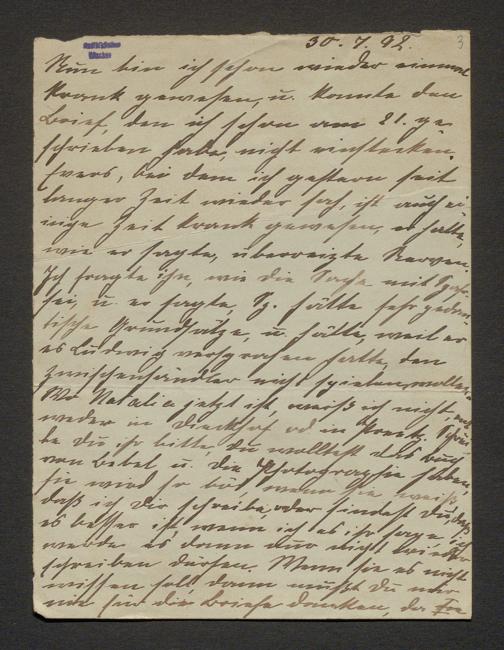 30. 7. 92. 3
Nun bin ich schon wieder einmal
krank gewesen, u. konnte den
Brief, den ich schon am 21. ge
schrieben habe, nicht einstecken.
Evers, bei dem ich gestern seit
langer Zeit wieder sah, ist auch ei
nige Zeit krank gewesen, er hatte,
wie er sagte, überreizte Nerven.
Ich fragte ihn, wie die Sache mit
sei, u. er sagte, hätte sehr
tische Grundsätze, u. hätte, weil er
es Ludwig versprochen hatte, den
Zwischenhändler nicht spielen wollen.
Wo Natalie jetzt ist, weiß ich nicht, ent
weder in od in Preetz. Schrei
be Du ihr bitte, Du wolltest das Buch
von Bebel u. die Photographie haben,
sie wird so bös, wenn sie weiß,
daß ich Dir schreibe, oder findest Du, daß
es besser ist, wenn ich es ihr sage, ich
werde es dann nur nicht wieder
schreiben dürfen. Wenn sie es nicht
wissen soll, dann mußt Du nur
nie für die Briefe danken, da